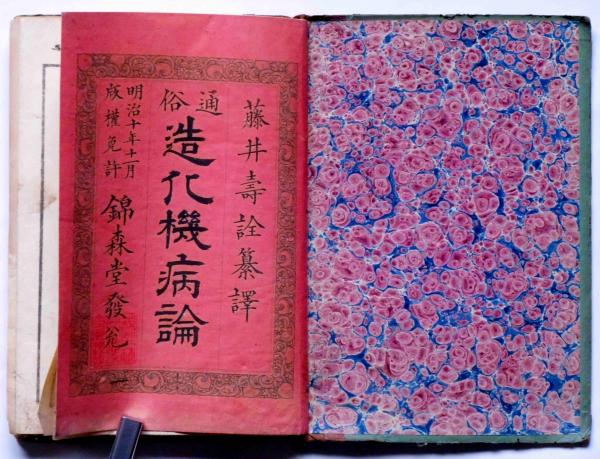 藤井壽詮纂譯
通俗
造化機病論
明治十年十一月
版權免許
錦森堂發兌
一